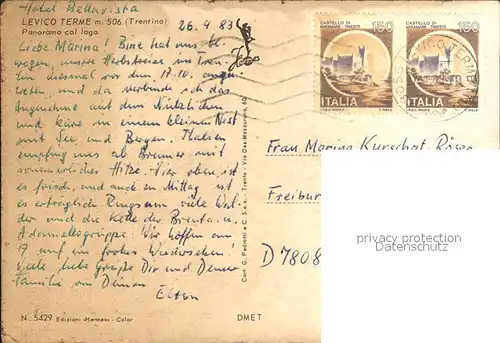 Hotel Bellavista
LEVICO TERME m. 506 (Trentino)
Panorama col lago
26.9.83
Liebe Marina! Bine hat uns be-
wogen, unsere Herbstreise ins Tren-
tin diesmal vor dem 17.10. anzu-
treten, und da verbinde ich das
Angenehme mit dem Nützlichen
und küre in einem kleinen Nest
mit See und Bergen. Italien
empfing uns ab Brenner mit
sommerlicher Hitze. Hier oben ist
es frisch, und auch am Mittag ist
es erträglich. Ringsum viele Wäl-
der und die Kette der Brenta u.
Adamellogruppe! Wir hoffen am
17. auf ein frohes Wiedersehen!
Viele liebe Grüße Dir und Deiner
Familie von Deinen
Eltern
N. 5429 Edizioni «Hermes» - Color
DMET
Cart. G. Pedrotti e C. S.a.s. - Trento - Via Dos Mezzacampo, 60
CASTELLO DI
MIRAMARE - TRIESTE
150
ITALIA
CASTELLO DI
MIRAMARE - TRIESTE
150
ITALIA
LEVICO TERME
Frau Marina Kurschat Röser
Freibur
D 7808
privacy protection
www.ansichtskarten-center.de